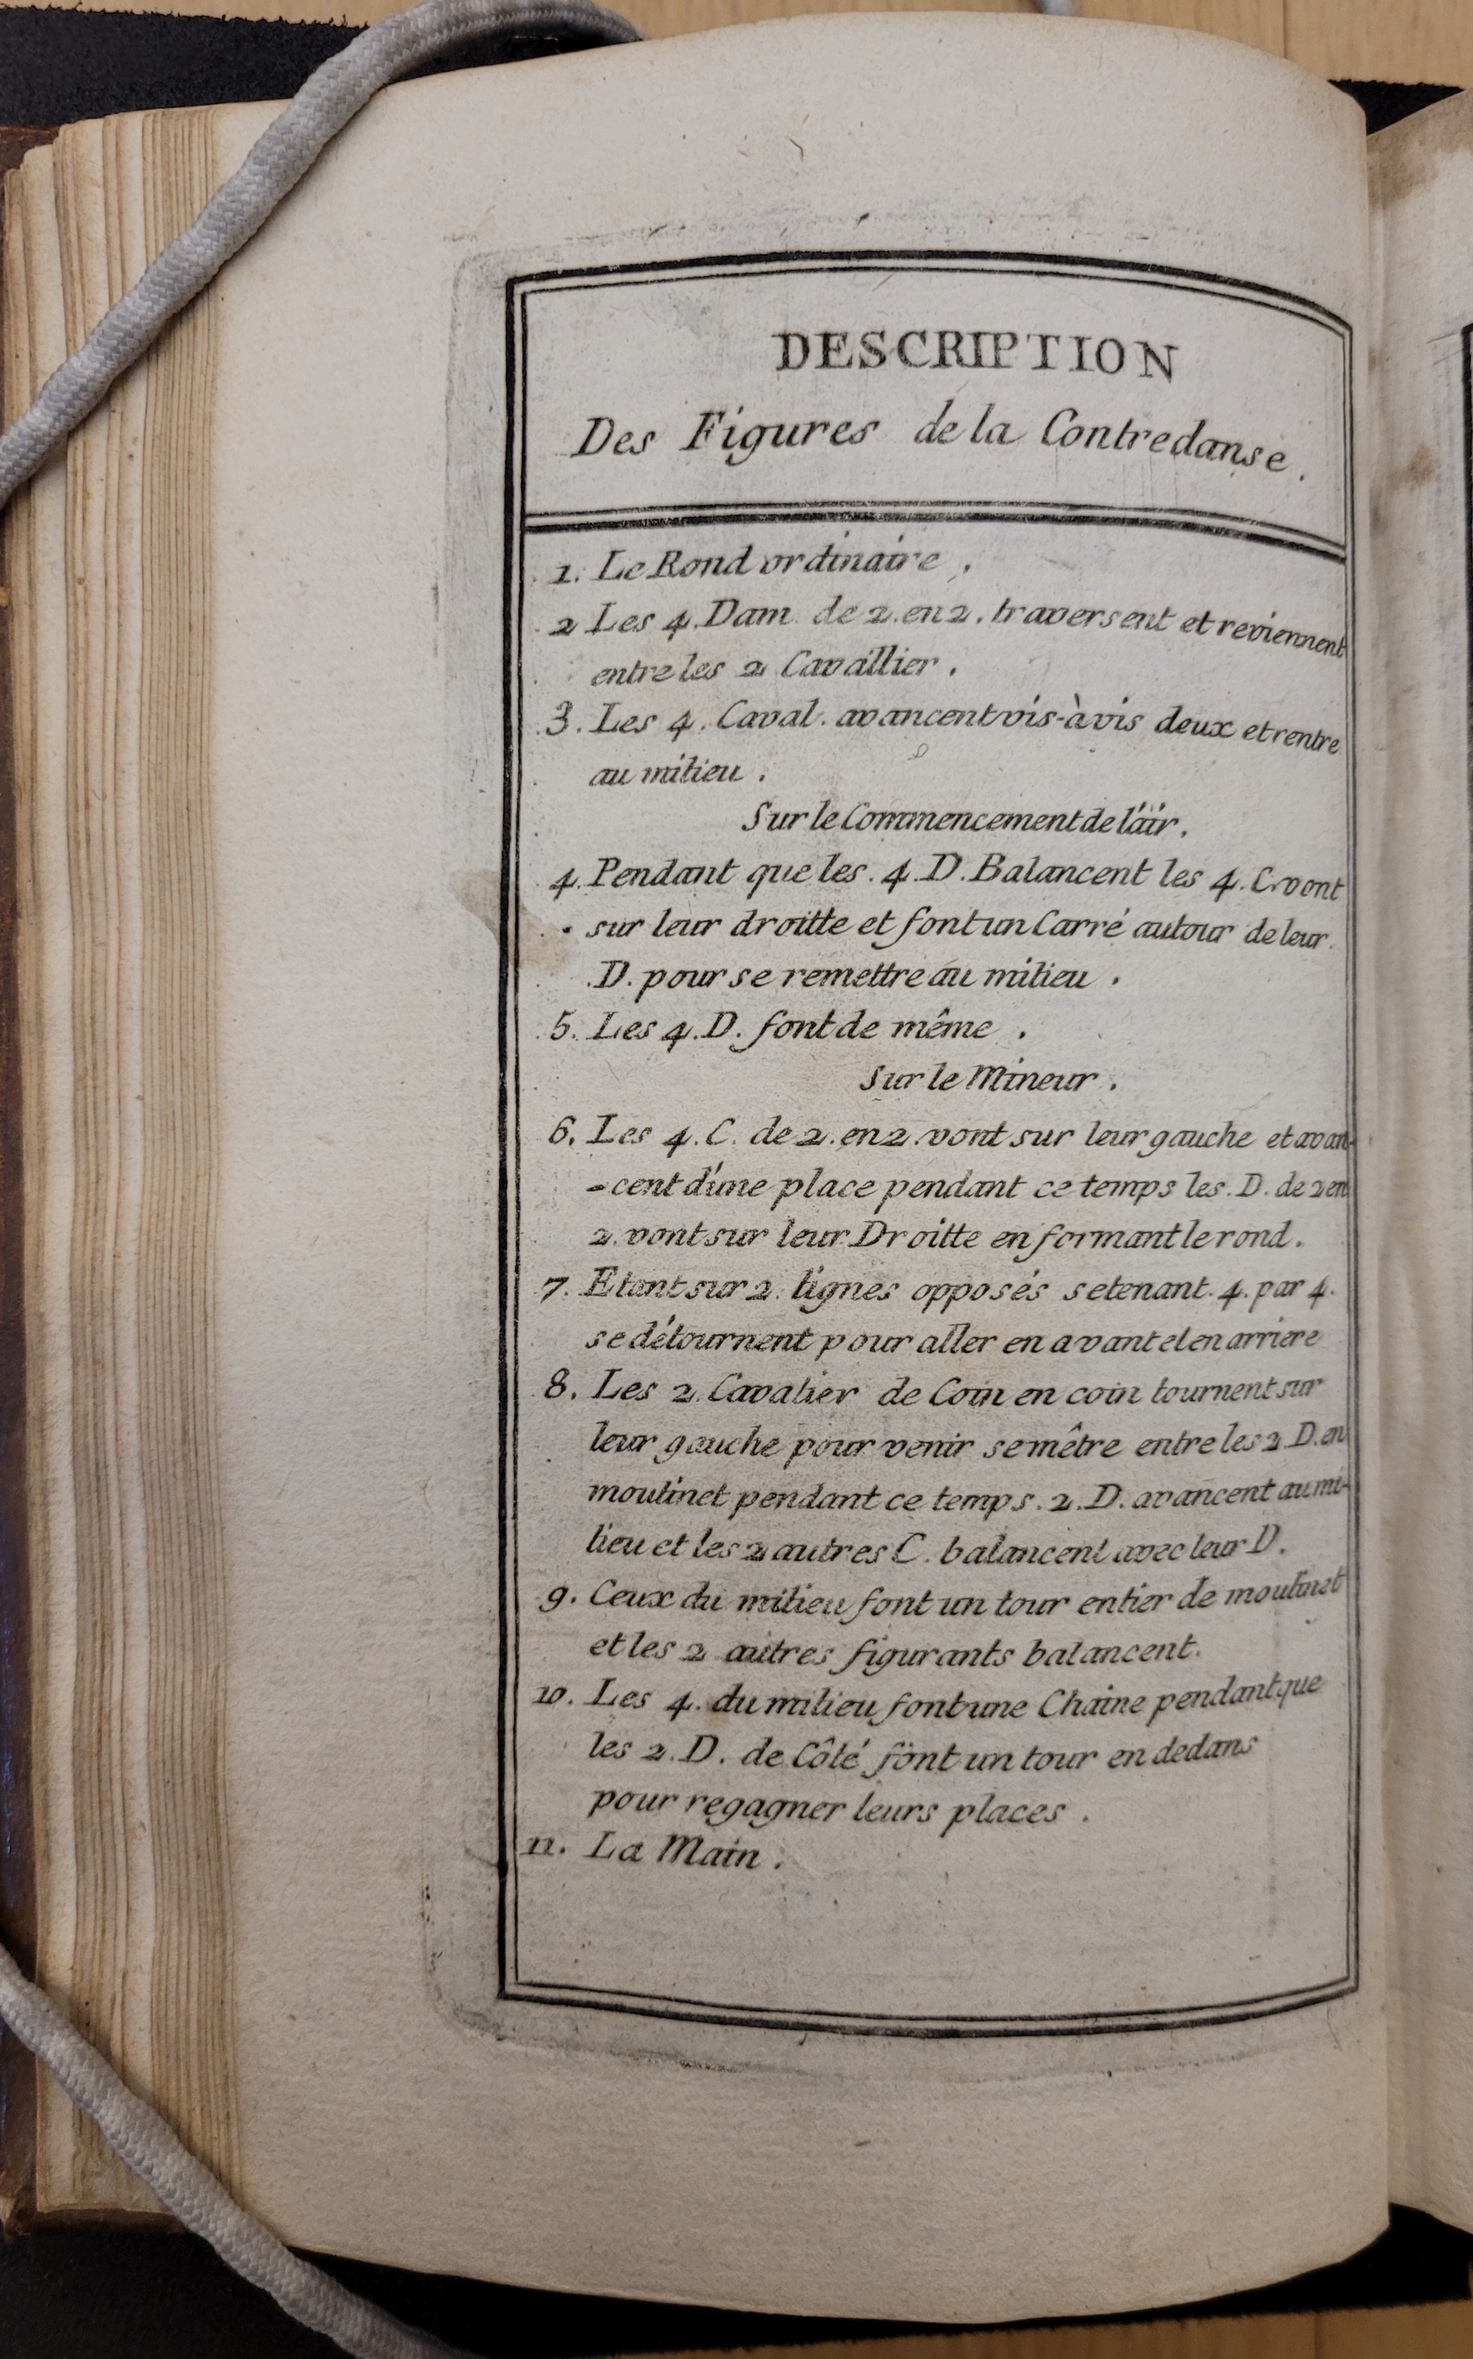 DESCRIPTION
Des Figures de la Contredanse.
1. Le Rond ordinaire.
2 Les 4. Dam. de 2. en 2. traversent et reviennent
entre les 2 Cavallier.
3. Les 4. Caval. avancent vis-à vis deux et rentre
au milieu.
Sur le Commencement de l'air.
4. Pendant que les. 4. D. Balancent les 4. C. vont
sur leur droitte et font un Carré autour de leur.
D. pour se remettre au milieu.
5. Les 4. D. font de même.
Sur le Mineur.
6. Les 4. C. de 2. en 2. vont sur leur gauche et avan-
-cent d'une place pendant ce temps les. D. de 2 en
2. vont sur leur Droitte en formant le rond.
7. Etant sur 2. lignes opposés se tenant. 4. par 4.
se détournent pour aller en avant et en arriere
8. Les 2. Cavalier de Coin en coin tournent sur
leur gauche pour venir se mêtre entre les 2 D. en
moulinet pendant ce temps. 2. D. avancent au mi-
lieu et les 2 autres C. balancent avec leur D.
9. Ceux du milieu font un tour entier de moulinet
et les 2 autres figurants balancent.
10. Les 4. du milieu font une Chaine pendant que
les 2. D. de Côté font un tour en dedans
pour regagner leurs places.
11. La Main.